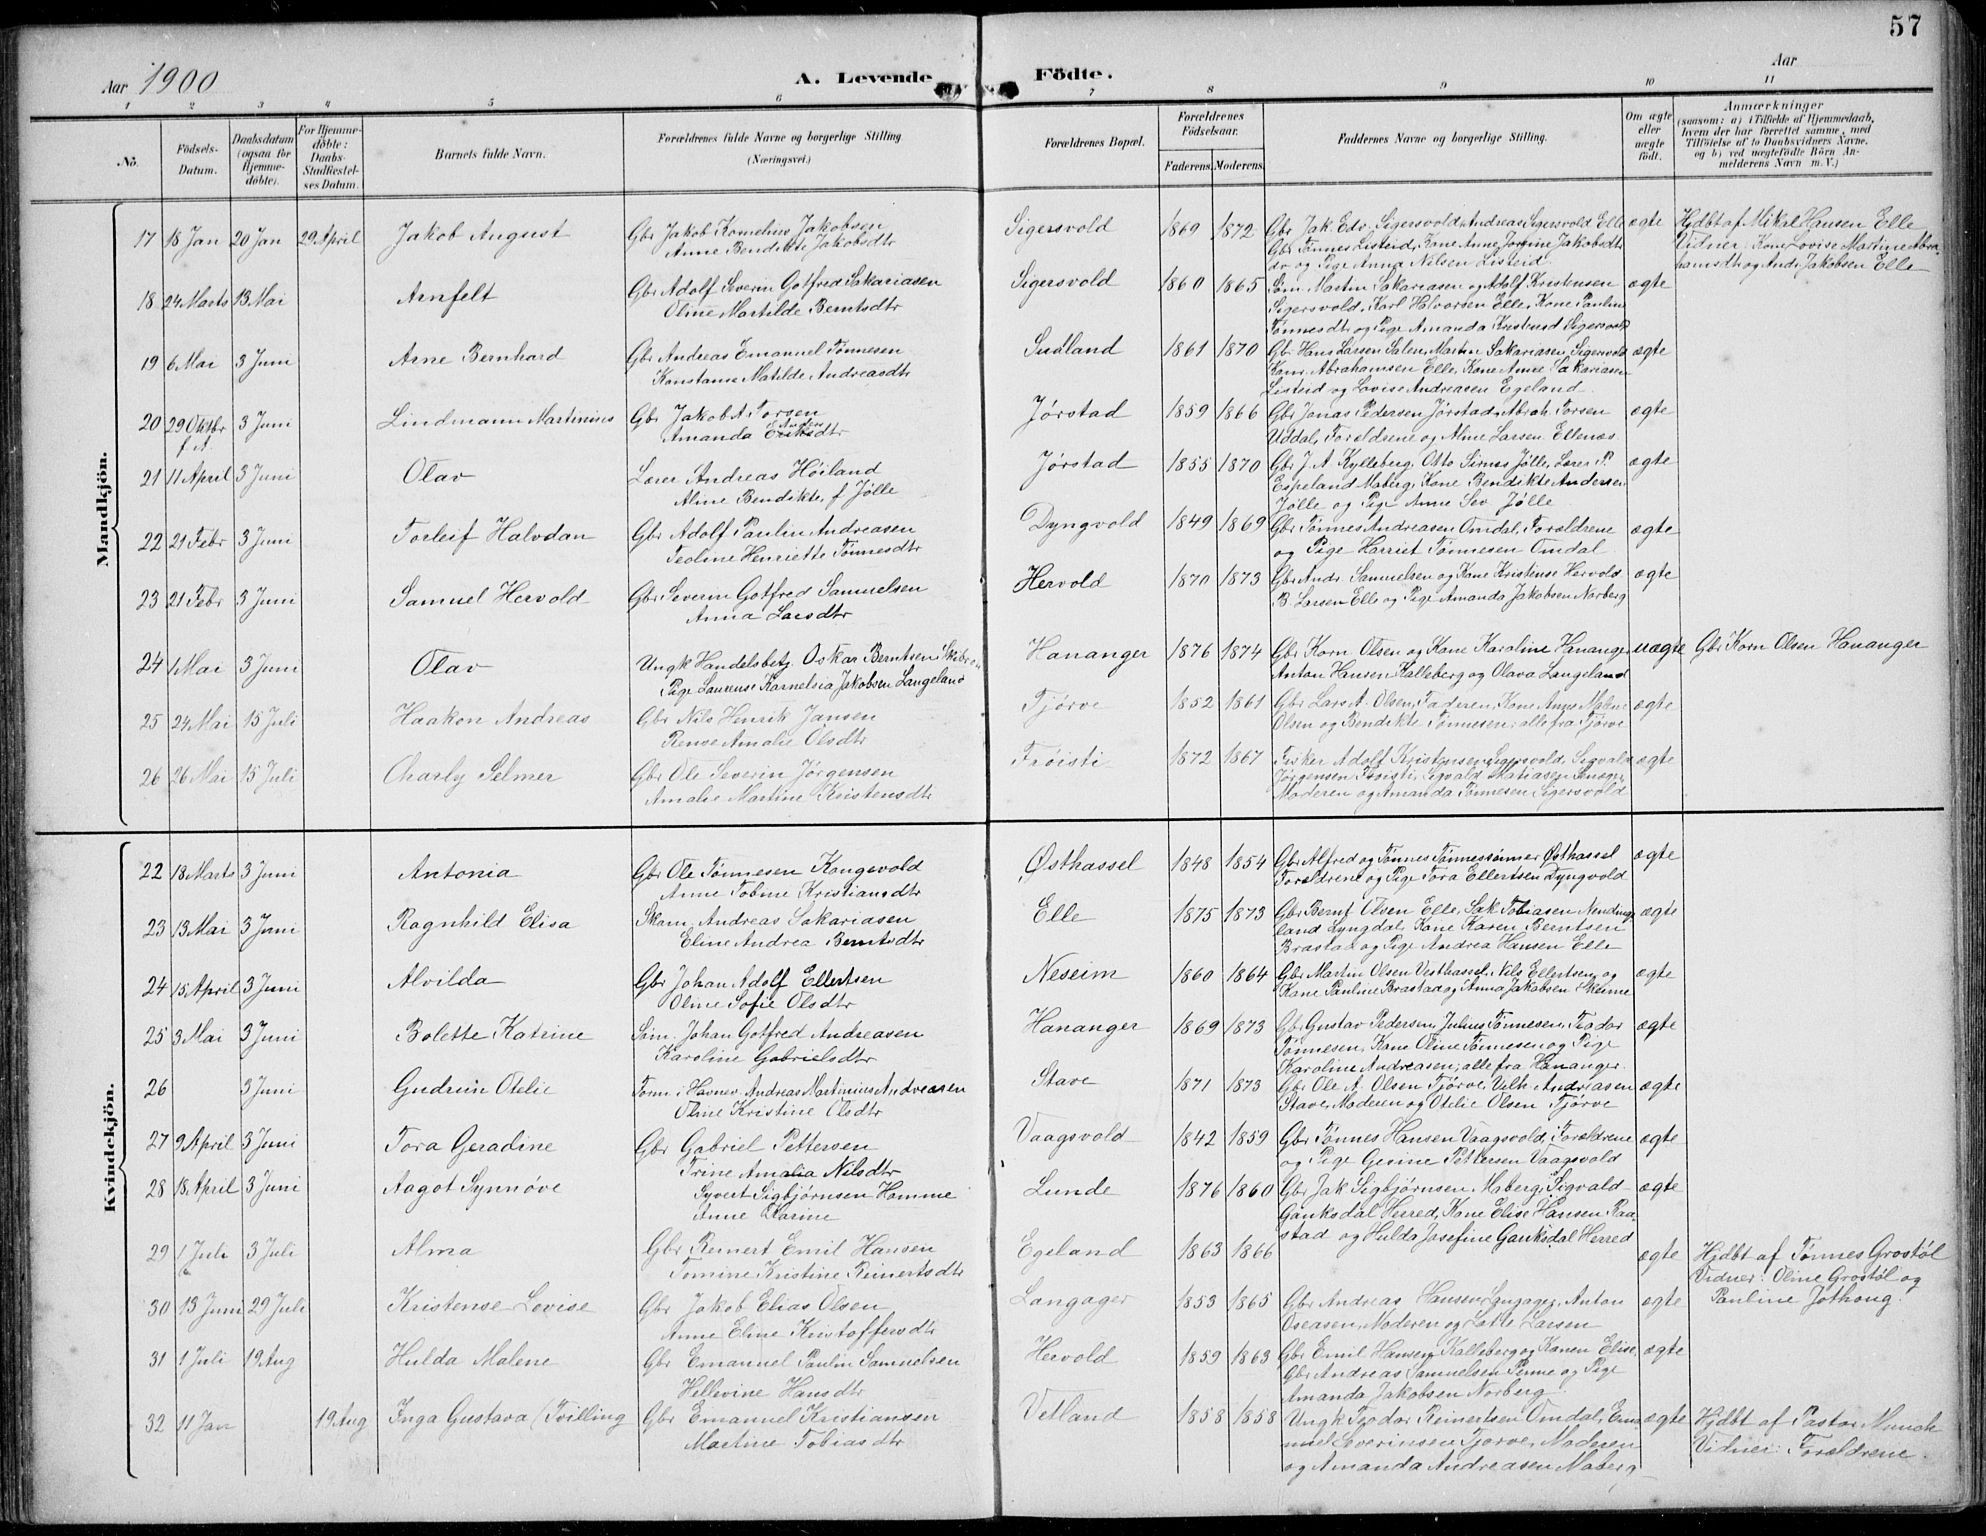 57
Aar 1900
A. Levende
Födte.
Aar
1 2 3 4 5 6 7 8 9 10 11
No.
Födsels-Datum.
Daabsdatum (ogsaa for Hjemme-döbte).
For Hjemme-döbte: Daabs-Stadfæstel-ses Datum.
Barnets fulde Navn.
Forældrenes fulde Navne og borgerlige Stilling (Næringsvei.)
Forældrenes Bopæl.
Forældrenes Födselsaar.
Faderens. Moderens.
Faddernes Navne og borgerlige Stilling.
Om ægte eller uægte födt.
Anmærkninger
(saasom: a) i Tilfælde af Hjemmedaab,
hvem der har forrettet samme, med
Tilföielse af to Daabsvidners Navne,
og b) ved uægtefödte Börn An-
melderens Navn m. V.)
Mandkjön.
17 18 Jan 20 Jan 29 April Jakob August Gbr Jakob Kornelius Jakobsen
Anne Bendikte Jakobsdtr
Sigersvold 1869 1872 Gbr Jak. Edv. Sigersvold, Andreas Sigersvold Elle
Gbr Tønnes Listeid, Kone Anne Jorgine Jakobsdt
do og Pige Anna Nilsen Listeid
ægte Hjdbt af Mikal Hansen Elle
Vidner: Kone Lovise Martine Abra-
hamsdt og Andr. Jakobsen Elle
18 24 Marts 13 Mai Arnfelt Gbr Adolf Severin Gotfred Sakariasen
Oline Martilde Berntsdtr
Sigersvold 1860 1865 Søm Martin Sakariasen og Adolf Kristensen
Sigersvold, Karl Halvorsen Elle, Kone Pauline
Tønnesdtr og Pige Amanda Kristensd Sigersvold
ægte
19 6 Mai 3 Juni Arne Bernhard Gbr Andreas Emanuel Tønnesen
Konstanse Matilde Andreasdtr
Sudland 1861 1870 Gbr Hans Larsen Salen, Martin Sakariasen, Sigersvold
Abrahamsen Elle, Kone Anne Sakariasen
Listeid og Lovise Andreasen Egeland
ægte
20 29 Oktbr f. A. 3 Juni Lindmann Martinius Gbr Jakob A. Torsen
Amanda Eriksdtr
Jørstad 1859 1866 Gbr Jonas Pedersen Jørstad, Abrah. Torsen
Uddal, Forældrene og Aline Larsen Ellenæs
ægte
21 11 April 3 Juni Olav Lærer Andreas Høiland
Aline Bendikte, f Jølle
Jørstad 1855 1870 Gbr J. A. Kylleberg, Otto Sirnes Jølle, Lærer P.
Espeland Maberg, Kone Bendikte Andersen
Jølle og Pige Anne Sev Jølle
ægte
22 21 Febr 3 Juni Torleif Halvdan Gbr Adolf Paulin Andreasen
Teoline Henriette Tønnesdtr
Dyngvold 1849 1869 Gbr Tønnes Andreasen Omdal, Forældrene
og Pige Harriet Tønnesen Omdal
ægte
23 21 Febr 3 Juni Samuel Hervold Gbr Severin Gotfred Samuelsen
Anna Larsdtr
Hervold 1870 1873 Gbr Andr. Samuelsen og Kone Kristense Hervold
B. Larsen Elle og Pige Amanda Jakobsen Norberg
ægte
24 1 Mai 3 Juni Olav Ungk Handelsbetj. Oskar Berntsen
Pige Laurense Karnelsia Jakobsen Langeland
Hananger 1876 1874 Gbr Korn Olsen og Kone Karoline Hananger
Anton Hansen Kalleberg og Olava Langeland
uægte Gbr Korn Olsen Hananger
25 24 Mai 15 Juli Haakon Andreas Gbr Nils Henrik Jansen
Rense Amalie Olsdtr
Tjørve 1852 1861 Gbr Lars A. Olsen, Faderen, Kone Anne Malene
Olsen og Bendikte Tønnesen; alle fra Tjørve
ægte
26 26 Mai 15 Juli Charly Selmer Gbr Ole Severin Jørgensen
Amalie Martine Kristensdtr
Frøisti 1872 1867 Fisker Adolf Kristensen Sigersvold, Sigvald
Jørgensen Frøisti, Sigvald Matiasen
Moderen og Amanda Tønnesen Sigersvold
ægte
Kvindekjön.
22 18 Marts 3 Juni Antonia Gbr Ole Tønnesen Kongevold
Anne Tobine Kristiansdtr
Østhassel 1848 1854 Gbr Alfred og Tønnes Tønnessønner Østhassel
Forældrene og Pige Tora Ellertsen Dyngvold
ægte
23 13 Mai 3 Juni Ragnhild Elisa Skom. Andreas Sakariasen
Eline Andrea Berntsdtr
Elle 1875 1873 Gbr Bernt Olsen Elle, Sak Tobiasen Nendinge
land Lyngdal, Kone Karen Berntsen
Brastad og Pige Andrea Hansen Elle
ægte
24 15 April 3 Juni Alvilda Gbr Johan Adolf Ellertsen
Oline Sofie Olsdtr
Neseim 1860 1864 Gbr Martin Olsen Vesthassel, Nils Ellertsen og
Kone Pauline Brastad og Anna Jakobsen Skeime
ægte
25 3 Mai 3 Juni Bolette Katrine Søm. Johan Gotfred Andreasen
Karoline Gabrielsdtr
Hananger 1869 1873 Gbr Gustav Pedersen, Julius Tønnesen, Teodor
Tønnesen, Kone Oline Tønnesen og Pige
Karoline Andreasen; alle fra Hananger
ægte
26 3 Juni Gudrun Otelie Tøm i Havnev. Andreas Martinius Andreasen
Oline Kristine Olsdtr
Stave 1871 1873 Gbr Ole A. Olsen Tjørve, Velb Andreasen
Stave, Moderen og Otelie Olsen Tjørve
ægte
27 9 April 3 Juni Tora Geradine Gbr Gabriel Pettersen
Trine Amalia Nilsdtr
Vaagsvold 1842 1859 Gbr Tønnes Hansen Vaagsvold, Forældrene
og Pige Gesine Pettersen Vaagsvold
ægte
28 18 April 3 Juni Aagot Synnøve Syvert Sigbjørnsen Homme
Anne Karine
Lunde 1876 1860 Gbr Jak Sigbjørnsen Maberg, Sigvald
Gauksdal Herred, Kone Elise Hansen Raa-
stad og Hulda Josefine Gauksdal Herred
ægte
29 1 Juli 3 Juli Alma Gbr Reinert Emil Hansen
Tomine Kristine Reinertsdtr
Egeland 1863 1866 ægte Hjdbt af Tønnes Grostøl
Vidner: Oline Grostøl og
Pauline Jothong
30 13 Juni 29 Juli Kristense Lovise Gbr Jakob Elias Olsen
Anne Eline Kristoffersdtr
Langager 1853 1865 Gbr Andreas Hansen Langager, Anton
Oseasen, Moderen og Lotte Larsen
ægte
31 1 Juli 19 Aug Hulda Malene Gbr Emanuel Paulin Samuelsen
Hellevine Hansdtr
Hervold 1859 1863 Gbr Emil Hansen Kalleberg og Konen Elise,
Gbr Andreas Samuelsen Penne og Pige
Amanda Jakobsen Norberg
ægte
32 11 Jan 19 Aug Inga Gustava (Tvilling Gbr Emanuel Kristiansen
Martine Tobiasdtr
Vetland 1858 1858 Ungk Teodor Reinertsen Omdal, Ema-
nuel Severinsen Tjørve, Moderen
og Amanda Andreasen Maberg
ægte Hjdbt af Pastor Munch
Vidner: Forældrene